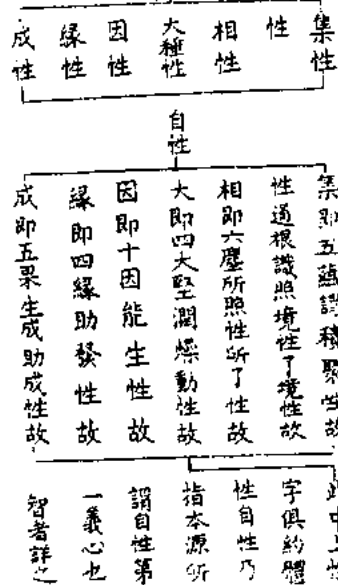 集性
性
相性
大種性
因性
緣性
成性
自性
集即五蘊謂積聚性故
性通根識照境性了境性故
相即六塵所照性所了性故
大即四大堅潤燥動性故
因即十因能生性故
緣即四緣助發性故
成即五果生成助成性故
此中上性
字俱約體
性自性乃
指本源所
謂自性第
一義心也
智者詳之